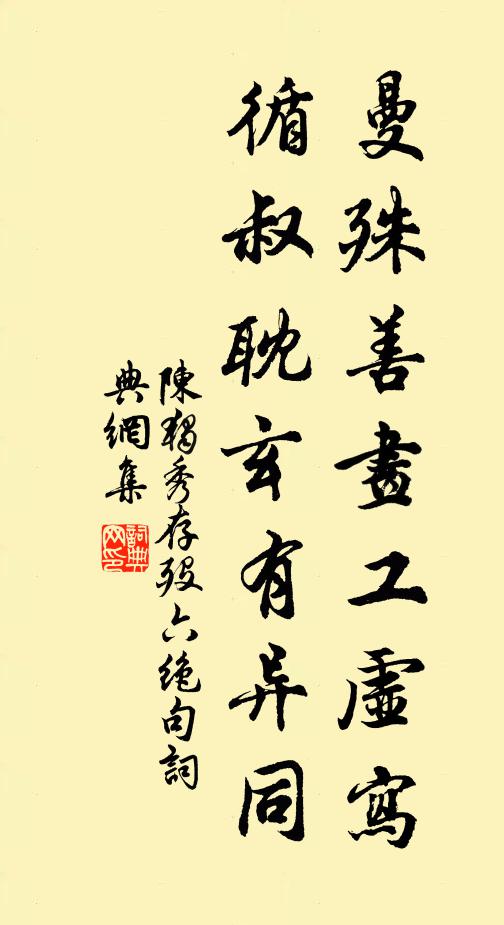 曼殊善畫工虛寫
循叔耽玄有异同
陳獨秀存歿六絶句詞
典網集
詞典
网印